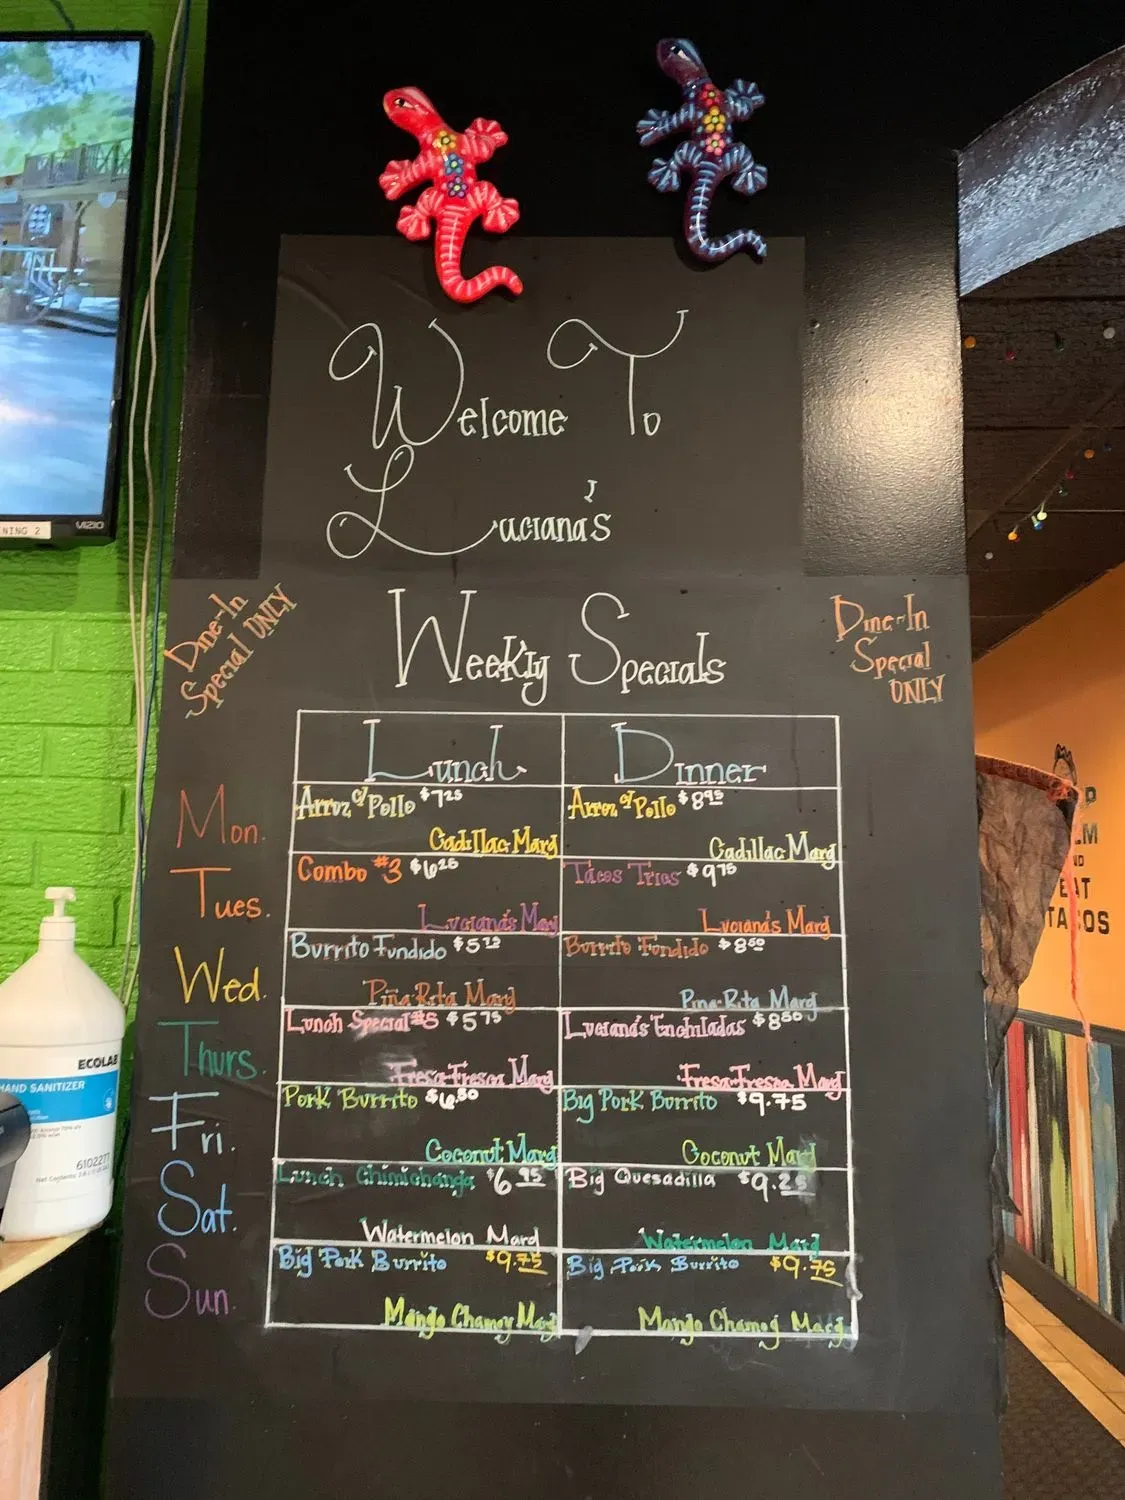 Welcome To
Luciana's
Dine-In
Special ONLY
Weekly Specials
Dine-In
Special
ONLY
Lunch Dinner
Mon. Arroz c/ Pollo $7.25 Arroz c/ Pollo $8.95
Cadillac Marg Cadillac Marg
Tues. Combo #3 $6.25 Tacos Trios $9.75
Luciana's Marg Luciana's Marg
Wed. Burrito Fundido Burrito Fundido $8.50
Piña-Rita Marg Pina-Rita Marg
Thurs. Lunch Special #5 $5.75 Luciana's Enchiladas $8.50
Fresa-Fresca Marg Fresa-Fresca Marg
Fri. Pork Burrito $6.50 Big Pork Burrito $9.75
Coconut Marg Coconut Marg
Sat. Lunch Chimichanga $6.95 Big Quesadilla $9.25
Watermelon Marg Watermelon Marg
Sun. Big Pork Burrito $9.75 Big Pork Burrito $9.75
Mango Chamoy Marg Mango Chamoy Marg
VIZIO
NING 2
ECOLAB
HAND SANITIZER
6102277
EAT
TACOS